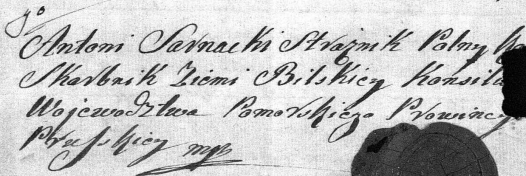 Antoni Sarnacki Strażnik Polny
Skarbnik Ziemi Bilskiey
Wojewodztwa Pomorskiego Prowincy
Pruſskiey mpp